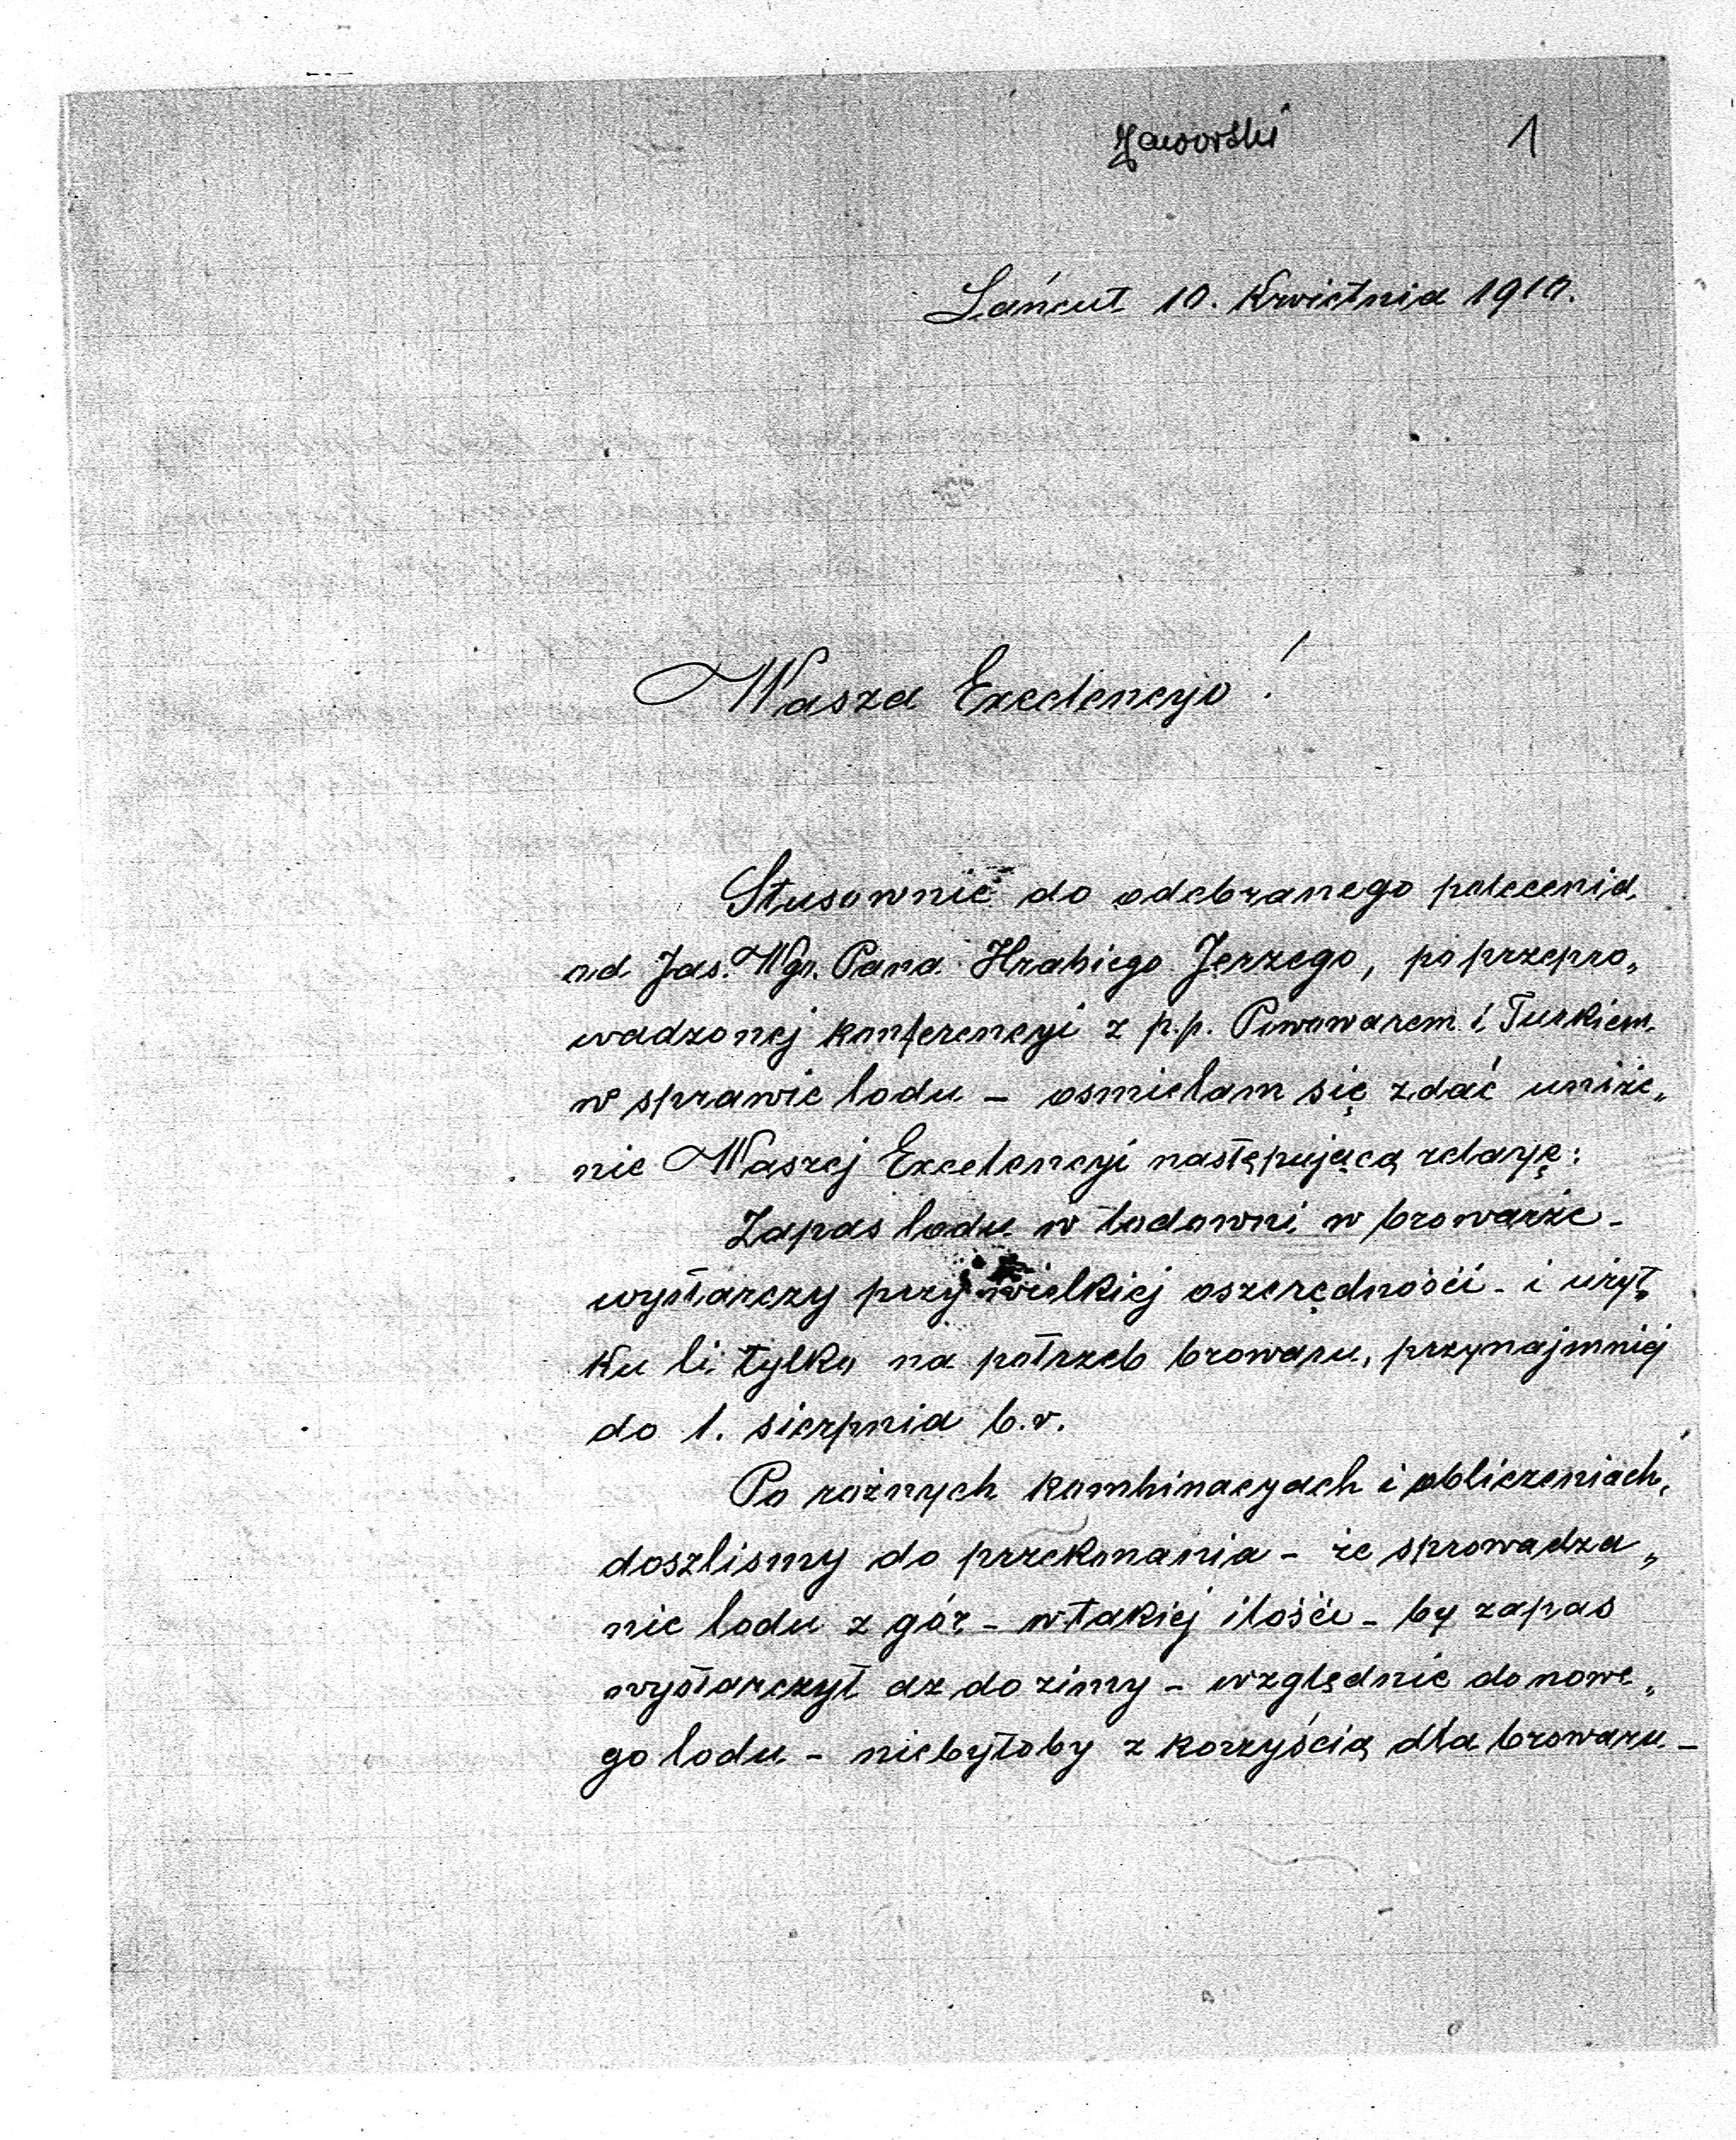 Jaworski 1
Łańcut 10. Kwietnia 1910.
Wasza Excelencyo!
Stosownie do odebranego polecenia
od Jas. Wgo. Pana Hrabiego Jerzego, po przepro„
wadzonej konferencyi z p.p. Piwowarem i Turkiem
w sprawie lodu – osmielam się zdać uniże„
nie Waszej Excelencyi następującą relacyę:
Zapas lodu w lodowni w browarze –
wystarczy przy wielkiej oszczędności – i użyt„
ku li tylko na potrzeb browaru, przynajmniej
do 1. sierpnia b.r.
Po rożnych kombinacyach i obliczeniach,
doszlismy do przekonania – że sprowadza„
nie lodu z gór – w takiej ilości – by zapas
wystarczył aż do zimy – względnie do nowe„
go lodu – niebyłoby z korzyścią dla browaru –